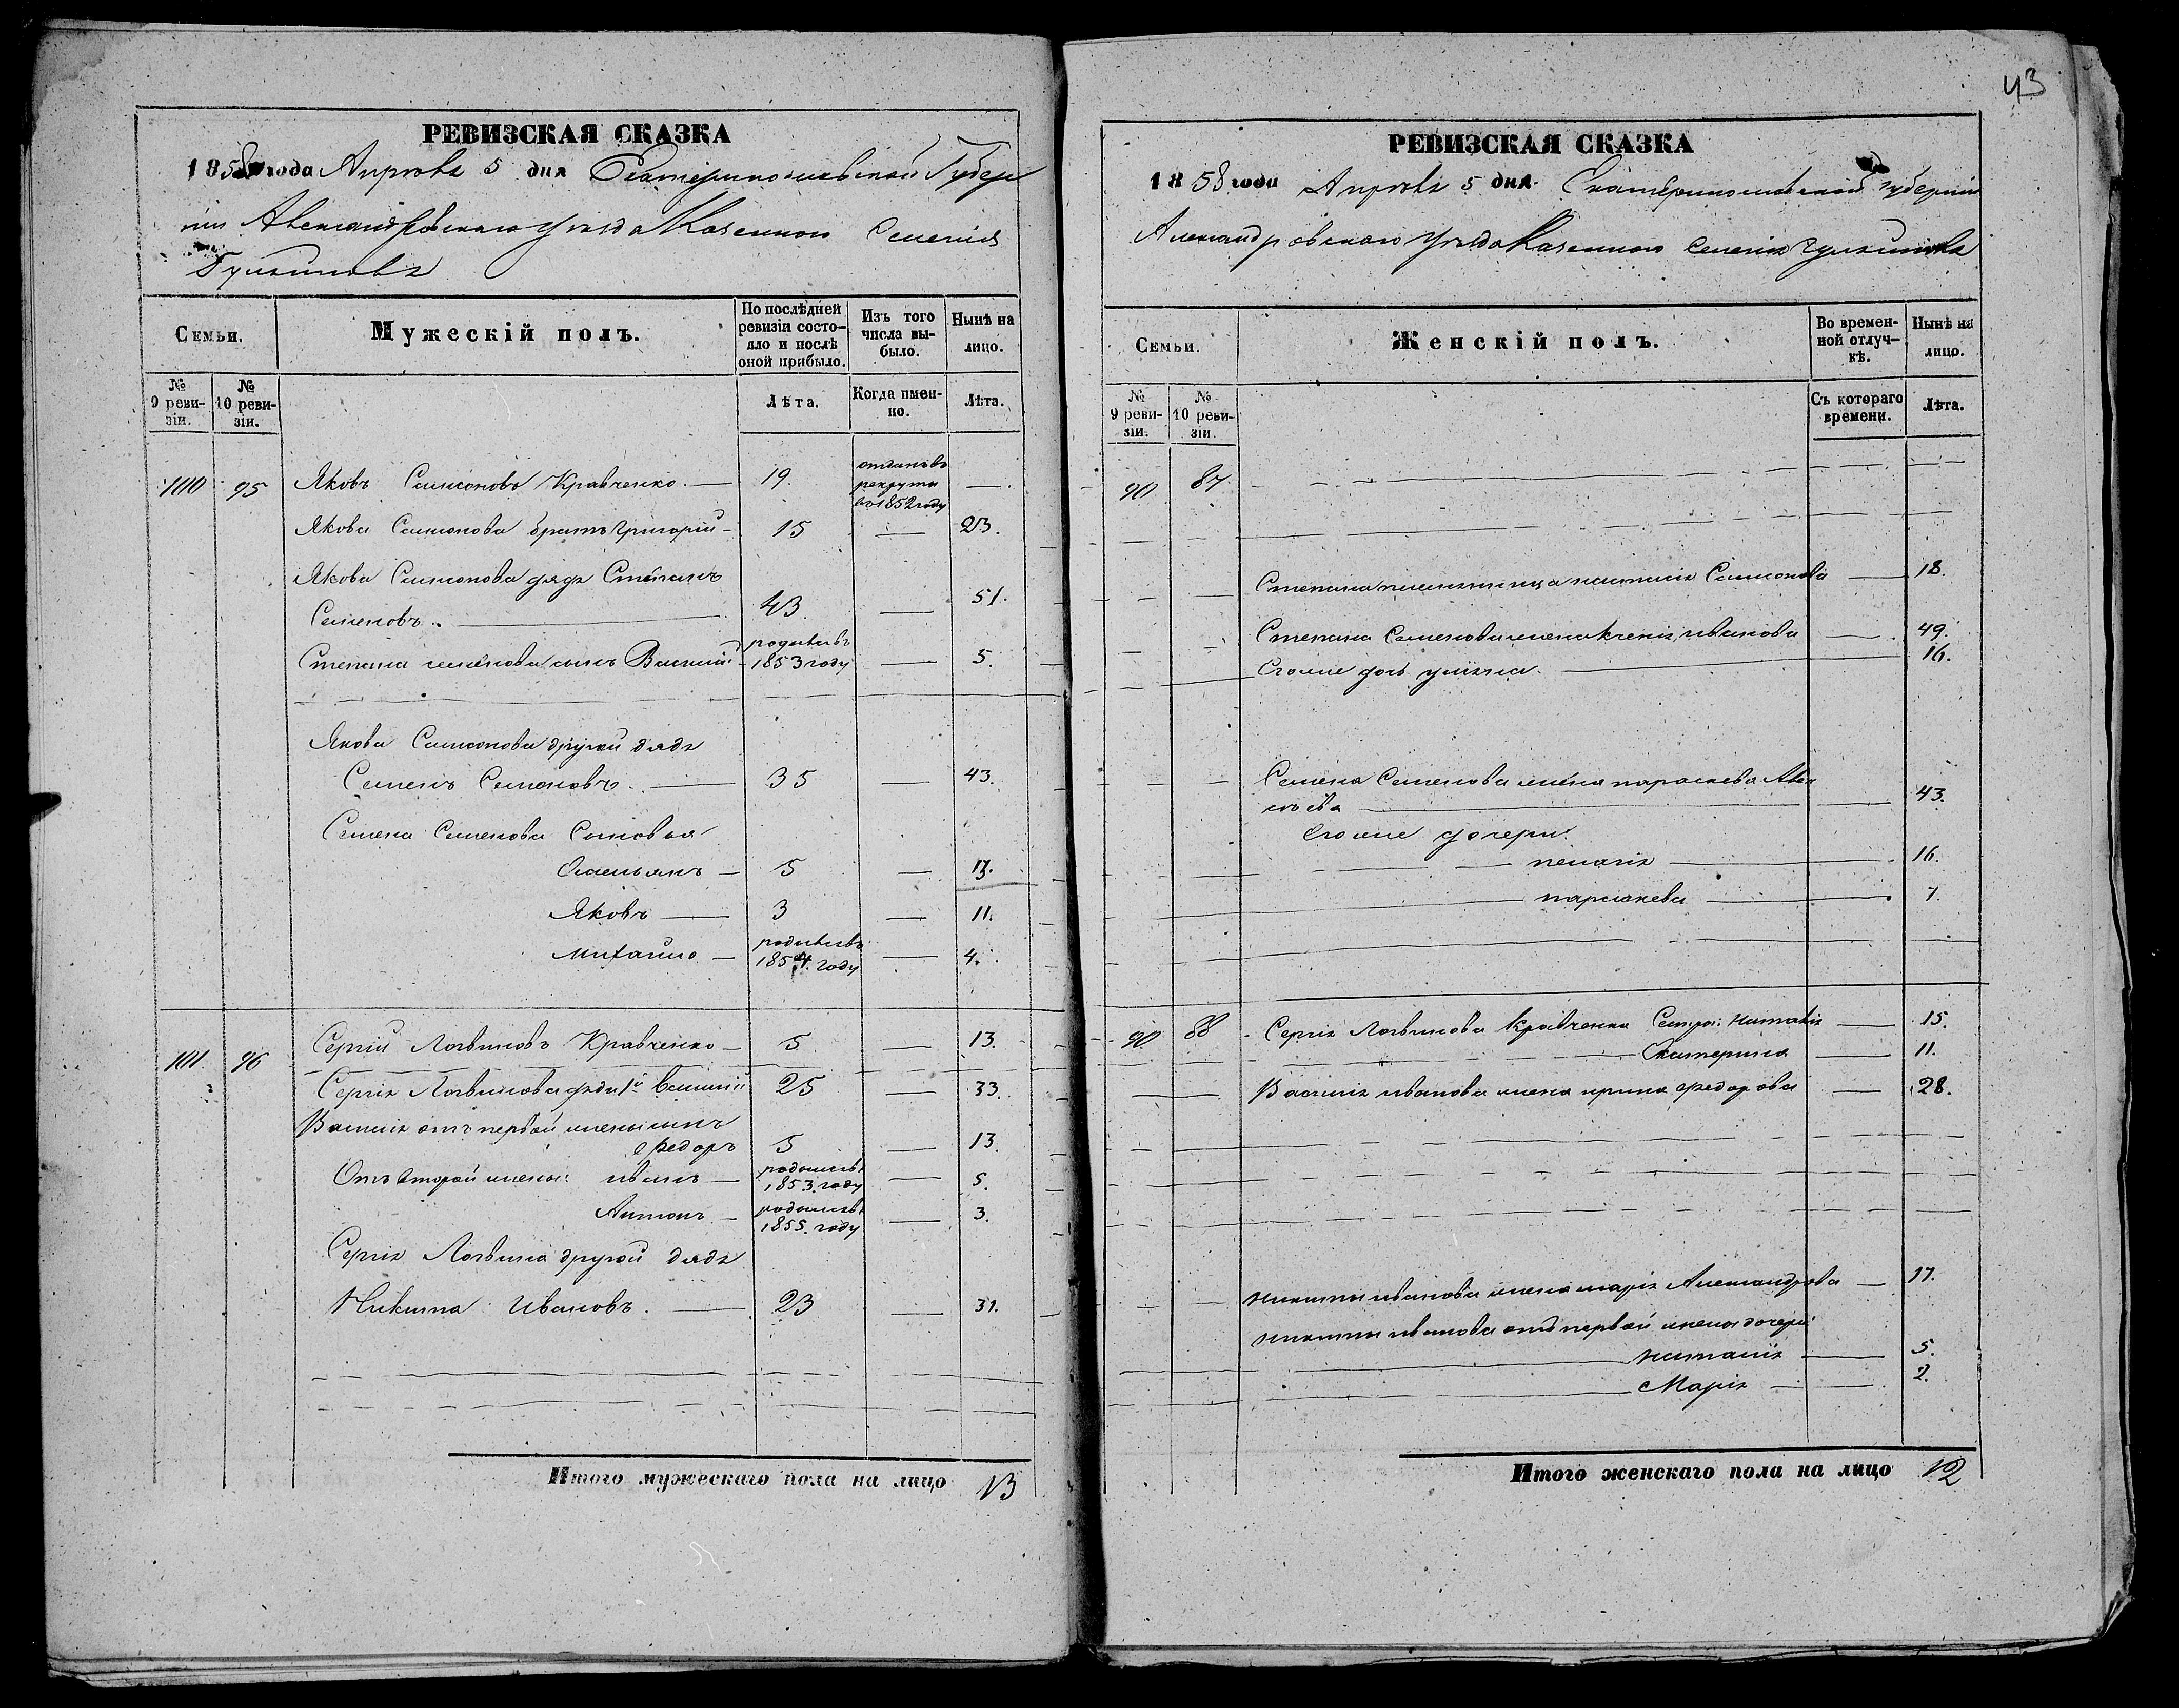 РЕВИЗСКАЯ СКАЗКА
1858 года Апреля 5 дня Екатеринославской Губер
нии Александровского уезда Казенного Селения
Гуляиполя
Семьи.
Мужескій полъ.
По послѣдней ревизіи состо-
яло и послѣ оной прибыло.
Изъ того числа вы-
было.
Нынѣ на лицо.
№ 9 реви-
зіи.
№ 10 реви-
зіи.
Лѣта.
Когда имен-
но.
Лѣта.
100 95 Яковъ Самсоновъ Кравченко 19. отданъ въ рекруты въ 1852 году —
Якова Самсонова братъ Григорій 15 — 23.
Якова Самсонова дядя Степанъ
Семеновъ. 43 — 51.
Степана Семенова сынъ Василій родился 1853 году — 5.
Якова Самсонова другой дядя
Семенъ Семеновъ 35 — 43.
Семена Семенова Сыновья
5 — 13.
Яковъ 3 — 11.
Михайло родился 1854. году — 4.
101 96 Сергій Логвиновъ Кравченко 5 — 13.
Сергія Логвинова дядя 1й Василій 25 — 33.
Василія отъ первой жены сынъ
Федоръ 5 — 13.
Отъ второй жены: иванъ родился 1853. году — 5.
Антонъ родился 1855. году — 3.
Сергія Логвина другой дядя
Никита Ивановъ. 23 — 31.
Итого мужескаго пола на лицо 13
43
РЕВИЗСКАЯ СКАЗКА
1858 года Апреля 5 дня Екатеринославской губернии
Александровского уезда Казенного селения гуляиполя
Семьи.
Женскій полъ.
Во времен-
ной отлуч-
кѣ.
Нынѣ на лицо.
№ 9 реви-
зіи.
№ 10 реви-
зіи.
Съ котораго времени.
Лѣта.
90 87
Степана племянница настасія Самсонова — 18.
Степана Семенова жена ксенія иванова — 49.
Его же дочь уліяна 16.
Семена Семенова жена параскева Алек
сѣева 43.
Его же дочери.
пелагія 16.
параскева 7.
90 88 Сергія Логвинова Кравченка Сестры: наталія — 15.
Екатерина — 11.
Василія иванова жена ирина федорова — 28.
никиты иванова жена марія Александрова — 17.
никиты иванова отъ первой жены дочери:
наталія — 5.
Марія — 2.
Итого женскаго пола на лицо 12